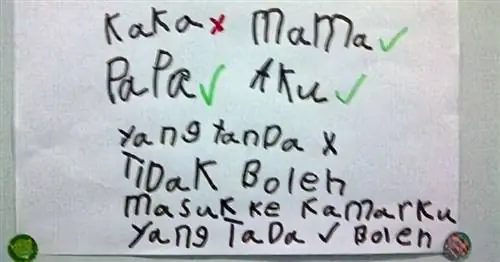 KaKa x mama ✓
PaPa ✓ AKu ✓
yang tanDa x
TiDaK Boleh
masuk ke Kamarku
yang TaDa ✓ Boleh